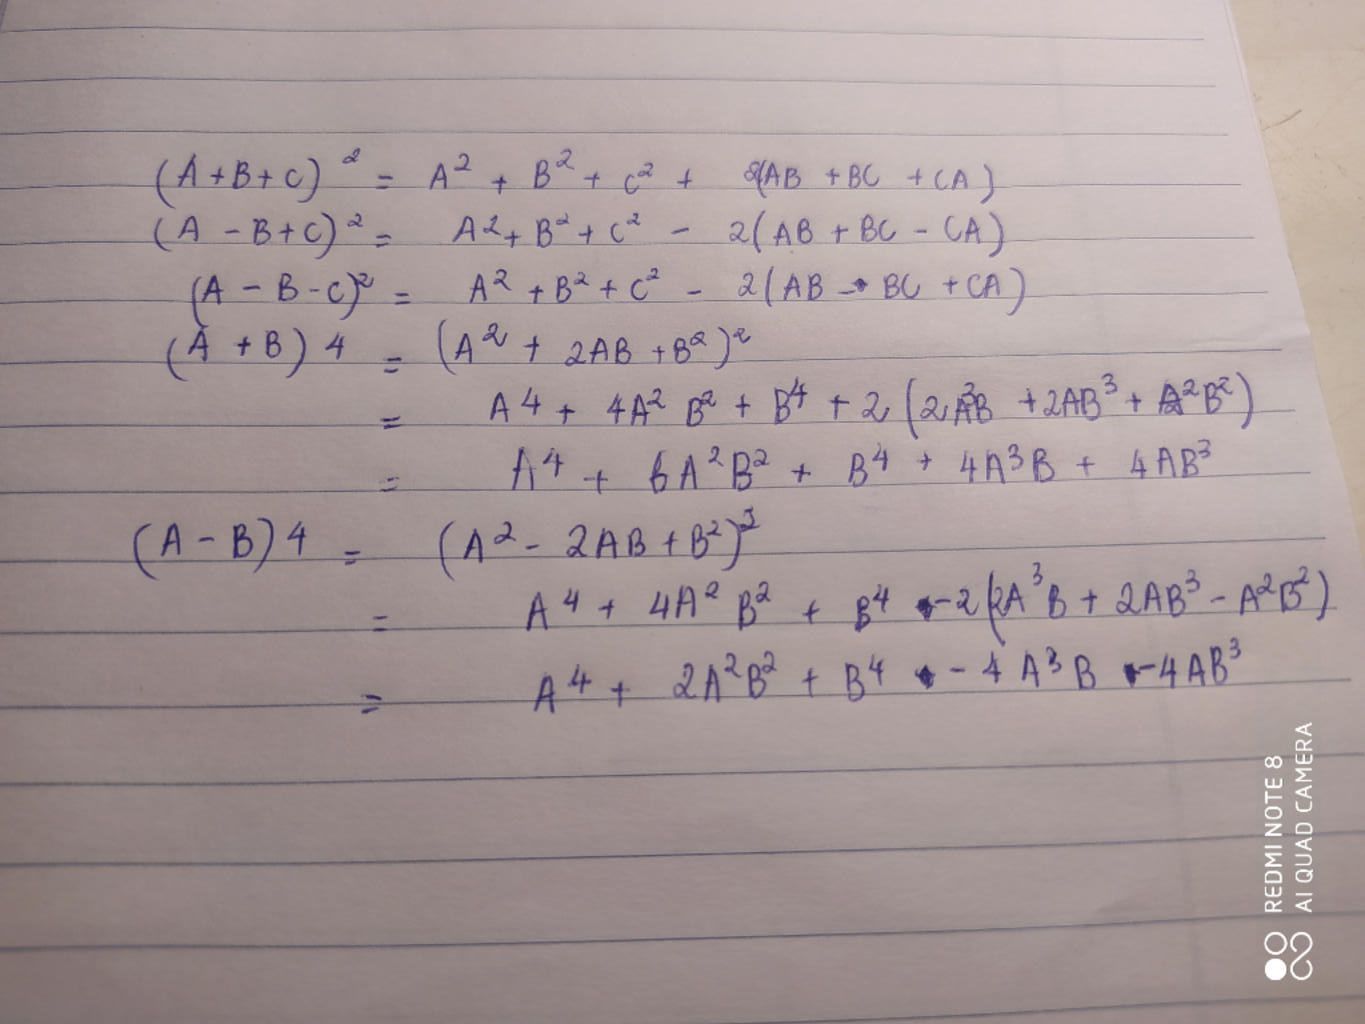 (A+B+C)² = A² + B² + C² + 2(AB + BC + CA)
(A - B+C)² = A² + B² + C² - 2(AB + BC - CA)
(A - B - C)² = A² + B² + C² - 2(AB - BC + CA)
(A + B) 4 = (A² + 2AB + B²)²
= A⁴ + 4A² B² + B⁴ + 2 (2A³B + 2AB³ + A²B²)
= A⁴ + 6A²B² + B⁴ + 4A³B + 4AB³
(A - B) 4 = (A² - 2AB + B²)²
= A⁴ + 4A² B² + B⁴ - 2(2A³B + 2AB³ - A²B²)
= A⁴ + 2A²B² + B⁴ - 4A³B - 4AB³
REDMI NOTE 8
AI QUAD CAMERA